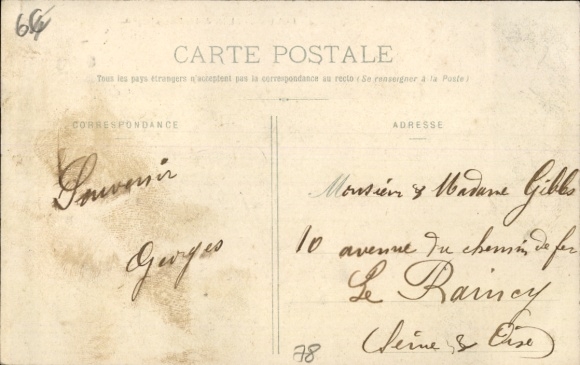 64
CARTE POSTALE
Tous les pays étrangers n'acceptent pas la correspondance au recto (Se renseigner à la Poste)
CORRESPONDANCE
ADRESSE
Souvenir
Georges
Monsieur & Madame Gibbs
10 avenue du chemin de fer
Le Raincy
Seine & Oise
78